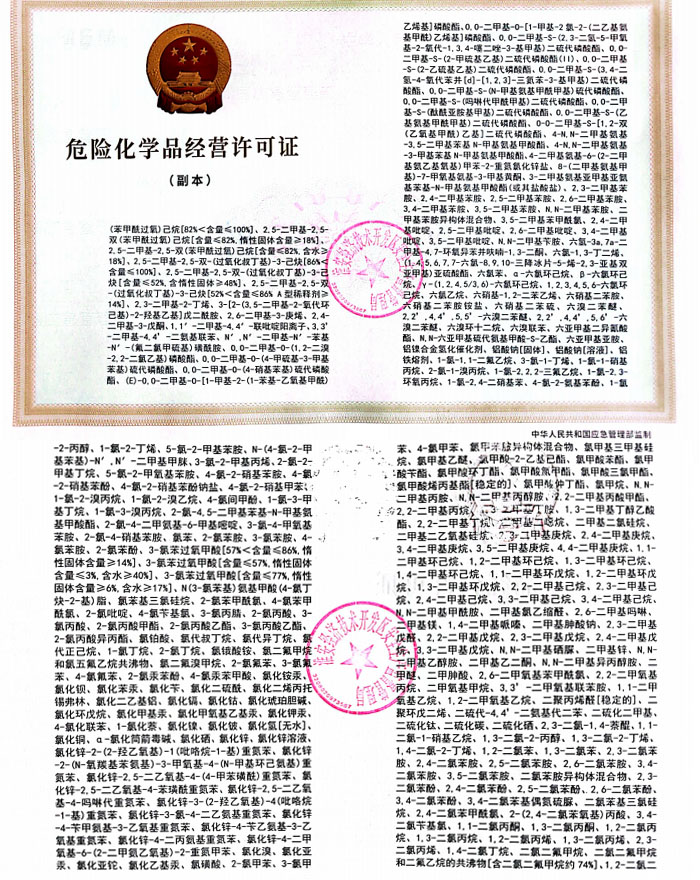 危险化学品经营许可证
（副本）
(苯甲酰过氧)己烷[82%<含量≤100%]、2,5-二甲基-2,5-
双(苯甲酰过氧)己烷[含量≤82%,惰性固体含量≥18%]、
2,5-二甲基-2,5-双(苯甲酰过氧)己烷[含量≤82%,含水≥
18%]、2,5-二甲基-2,5-双-(过氧化叔丁基)-3-己炔[86%<
含量≤100%]、2,5-二甲基-2,5-双-(过氧化叔丁基)-3-己
炔[含量≤52%,含惰性固体≥48%]、2,5-二甲基-2,5-双
-(过氧化叔丁基)-3-己炔[52%<含量≤86% A型稀释剂≥
14%]、2,3-二甲基-2-丁烯、3-[2-(3,5-二甲基-2-氧代环
己基)-2-羟基乙基]戊二酰胺、2,6-二甲基-3-庚烯、2,4-
二甲基-3-戊酮、1,1′-二甲基-4,4′-联吡啶阳离子、3,3′
-二甲基-4,4′-二氨基联苯、N′,N′-二甲基-N′-苯基
-N′-(氟二氯甲硫基)磺酰胺、O,O-二甲基-O-(1,2-二溴
-2,2-二氯乙基)磷酸酯、O,O-二甲基-O-(4-甲硫基-3-甲基
苯基)硫代磷酸酯、O,O-二甲基-O-(4-硝基苯基)硫代磷酸
酯、(E)-O,O-二甲基-O-[1-甲基-2-(1-苯基-乙氧基甲酰)
乙烯基]磷酸酯、O,O-二甲基-O-[1-甲基-2氯-2-(二乙基氨
基甲酰)乙烯基]磷酸酯、O,O-二甲基-S-(2,3-二氢-5-甲氧
基-2-氧代-1,3,4-噻二唑-3-基甲基)二硫代磷酸酯、O,O-
二甲基-S-(2-甲硫基乙基)二硫代磷酸酯(II)、O,O-二甲基
-S-(2-乙硫基乙基)二硫代磷酸酯、O,O-二甲基-S-(3,4-二
氢-4-氧代苯并[d]-[1,2,3]-三氮苯-3-基甲基)二硫代磷
酸酯、O,O-二甲基-S-(N-甲基氨基甲酰甲基)硫代磷酸酯、
O,O-二甲基-S-(吗啉代甲酰甲基)二硫代磷酸酯、O,O-二甲
基-S-(酞酰亚胺基甲基)二硫代磷酸酯、O,O-二甲基-S-(乙
基氨基甲酰甲基)二硫代磷酸酯、O,O-二甲基-S-[1,2-双
(乙氧基甲酰)乙基]二硫代磷酸酯、4-N,N-二甲基氨基
-3,5-二甲基苯基N-甲基氨基甲酸酯、4-N,N-二甲基氨基
-3-甲基苯基N-甲基氨基甲酸酯、4-二甲基氨基-6-(2-二甲
基氨乙基氧基)甲苯-2-重氮氯化锌盐、8-(二甲基氨基甲
基)-7-甲氧基氨基-3-甲基黄酮、3-二甲基氨基亚甲基亚氨
基苯基-N-甲基氨基甲酸酯(或其盐酸盐)、2,3-二甲基苯
胺、2,4-二甲基苯胺、2,5-二甲基苯胺、2,6-二甲基苯胺、
3,4-二甲基苯胺、3,5-二甲基苯胺、N,N-二甲基苯胺、二
甲基苯胺异构体混合物、3,5-二甲基苯甲酰氯、2,4-二甲
基吡啶、2,5-二甲基吡啶、2,6-二甲基吡啶、3,4-二甲基
吡啶、3,5-二甲基吡啶、N,N-二甲基苄胺、六氢-3a,7a-二
甲基-4,7-环氧异苯并呋喃-1,3-二酮、六氯-1,3-丁二烯、
(1,4,5,6,7,7-六氯-8,9,10-三降冰片-5-烯-2,3-亚基双
亚甲基)亚硫酸酯、六氯苯、α-六氯环己烷、β-六氯环己
烷、γ-(1,2,4,5/3,6)-六氯环己烷、1,2,3,4,5,6-六氯环
己烷、六氯乙烷、六硝基-1,2-二苯乙烯、六硝基二苯胺、
六硝基二苯胺铵盐、六硝基二苯硫、六溴二苯醚、
2,2′,4,4′,5,5′-六溴二苯醚、2,2′,4,4′,5,6′-六
溴二苯醚、六溴环十二烷、六溴联苯、六亚甲基二异氰酸
酯、N,N-六亚甲基硫代氨基甲酸-S-乙酯、六亚甲基亚胺、
铝镍合金氢化催化剂、铝酸钠[固体]、铝酸钠[溶液]、铝
铁熔剂、1-氯-1,1-二氟乙烷、3-氯-1-丁烯、1-氯-1-硝基
丙烷、2-氯-1-溴丙烷、1-氯-2,2,2-三氟乙烷、1-氯-2,3-
环氧丙烷、1-氯-2,4-二硝基苯、4-氯-2-氨基苯酚、1-氯
中华人民共和国应急管理部监制
-2-丙醇、1-氯-2-丁烯、5-氯-2-甲基苯胺、N-(4-氯-2-甲
基苯基)-N′,N′-二甲基甲脒、3-氯-2-甲基丙烯、2-氯-2-
甲基丁烷、5-氯-2-甲氧基苯胺、4-氯-2-硝基苯胺、4-氯
-2-硝基苯酚、4-氯-2-硝基苯酚钠盐、4-氯-2-硝基甲苯、
1-氯-2-溴丙烷、1-氯-2-溴乙烷、4-氯间甲酚、1-氯-3-甲
基丁烷、1-氯-3-溴丙烷、2-氯-4,5-二甲基苯基-N-甲基氨
基甲酸酯、2-氯-4-二甲氨基-6-甲基嘧啶、3-氯-4-甲氧基
苯胺、2-氯-4-硝基苯胺、氯苯、2-氯苯胺、3-氯苯胺、4-
氯苯胺、2-氯苯酚、3-氯苯过氧甲酸[57%<含量≤86%,惰
性固体含量≥14%]、3-氯苯过氧甲酸[含量≤57%,惰性固体
含量≤3%,含水≥40%]、3-氯苯过氧甲酸[含量≤77%,惰性
固体含量≥6%,含水≥17%]、N(3-氯苯基)氨基甲酸(4-氯丁
炔-2-基)脂、氯苯基三氯硅烷、2-氯苯甲酰氯、4-氯苯甲
酰氯、2-氯吡啶、4-氯苄基氯、3-氯丙腈、2-氯丙酸、3-
氯丙酸、2-氯丙酸甲酯、2-氯丙酸乙酯、3-氯丙酸乙酯、
2-氯丙酸异丙酯、氯铂酸、氯代叔丁烷、氯代异丁烷、氯
代正己烷、1-氯丁烷、2-氯丁烷、氯锇酸铵、氯二氟甲烷
和氯五氟乙烷共沸物、氯二氟溴甲烷、2-氯氟苯、3-氯氟
苯、4-氯氟苯、2-氯汞苯酚、4-氯汞苯甲酸、氯化铵汞、
氯化钡、氯化苯汞、氯化苄、氯化二硫酰、氯化二烯丙托
锡弗林、氯化二乙基铝、氯化镉、氯化钴、氯化琥珀胆碱、
氯化环戊烷、氯化甲基汞、氯化甲氧基乙基汞、氯化钾汞、
4-氯化联苯、1-氯化萘、氯化镍、氯化铍、氯化氢[无水]、
氯化铜、α-氯化筒箭毒碱、氯化硒、氯化锌、氯化锌溶液、
氯化锌-2-(2-羟乙氧基)-1(吡咯烷-1-基)重氮苯、氯化锌
-2-(N-氧羰基苯氨基)-3-甲氧基-4-(N-甲基环己氨基)重
氮苯、氯化锌-2,5-二乙氧基-4-(4-甲苯磺酰)重氮苯、氯
化锌-2,5-二乙氧基-4-苯磺酰重氮苯、氯化锌-2,5-二乙氧
基-4-吗啉代重氮苯、氯化锌-3-(2-羟乙氧基)-4(吡咯烷
-1-基)重氮苯、氯化锌-3-氯-4-二乙氨基重氮苯、氯化锌
-4-苄甲氨基-3-乙氧基重氮苯、氯化锌-4-苄乙氨基-3-乙
氧基重氮苯、氯化锌-4-二丙氨基重氮苯、氯化锌-4-二甲
氧基-6-(2-二甲氨乙氧基)-2-重氮甲苯、氯化溴、氯化亚
汞、氯化亚铊、氯化乙基汞、氯磺酸、2-氯甲苯、3-氯甲
苯、4-氯甲苯、氯甲苯胺异构体混合物、氯甲基三甲基硅
烷、氯甲基乙醚、氯甲酸-2-乙基己酯、氯甲酸苯酯、氯甲
酸苄酯、氯甲酸环丁酯、氯甲酸氯甲酯、氯甲酸三氯甲酯、
氯甲酸烯丙基酯[稳定的]、氯甲酸仲丁酯、氯甲烷、N,N-
二甲基丙胺、N,N-二甲基丙醇胺、2,2-二甲基丙酸甲酯、
2,2-二甲基丙烷、1,3-二甲基丁胺、1,3-二甲基丁醇乙酸
酯、2,2-二甲基丁烷、二甲基二噁烷、二甲基二氯硅烷、
二甲基二乙氧基硅烷、2,3-二甲基庚烷、2,4-二甲基庚烷、
3,4-二甲基庚烷、3,5-二甲基庚烷、4,4-二甲基庚烷、1,1-
二甲基环己烷、1,2-二甲基环己烷、1,3-二甲基环己烷、
1,4-二甲基环己烷、1,1-二甲基环戊烷、1,2-二甲基环戊
烷、1,3-二甲基环戊烷、2,2-二甲基己烷、2,3-二甲基己
烷、2,4-二甲基己烷、3,3-二甲基己烷、3,4-二甲基己烷、
N,N-二甲基甲酰胺、二甲基氯乙缩醛、2,6-二甲基吗啉、
二甲基镁、1,4-二甲基哌嗪、二甲基胂酸钠、2,3-二甲基
戊醛、2,2-二甲基戊烷、2,3-二甲基戊烷、2,4-二甲基戊
烷、3,3-二甲基戊烷、N,N-二甲基硒脲、二甲基锌、N,N-二
甲基乙醇胺、二甲基乙二酮、N,N-二甲基异丙醇胺、二
甲醚、二甲胂酸、2,6-二甲氧基苯甲酰氯、2,2-二甲氧基
丙烷、二甲氧基甲烷、3,3′-二甲氧基联苯胺、1,1-二甲
氧基乙烷、1,2-二甲氧基乙烷、二聚丙烯醛[稳定的]、二
聚环戊二烯、二硫代-4,4′-二氨基代二苯、二硫化二甲基、
二硫化钛、二硫化碳、二硫化硒、2,3-二氯-1,4-萘醌、1,1-
二氯-1-硝基乙烷、1,3-二氯-2-丙醇、1,3-二氯-2-丁烯、
1,4-二氯-2-丁烯、1,2-二氯苯、1,3-二氯苯、2,3-二氯苯
胺、2,4-二氯苯胺、2,5-二氯苯胺、2,6-二氯苯胺、3,4-
二氯苯胺、3,5-二氯苯胺、二氯苯胺异构体混合物、2,3-
二氯苯酚、2,4-二氯苯酚、2,5-二氯苯酚、2,6-二氯苯酚、
3,4-二氯苯酚、3,4-二氯苯基偶氮硫脲、二氯苯基三氯硅
烷、2,4-二氯苯甲酰氯、2-(2,4-二氯苯氧基)丙酸、3,4-
二氯苄基氯、1,1-二氯丙酮、1,3-二氯丙酮、1,2-二氯丙
烷、1,3-二氯丙烷、1,2-二氯丙烯、1,3-二氯丙烯、2,3-
二氯丙烯、1,4-二氯丁烷、二氯二氟甲烷、二氯二氟甲烷
和二氟乙烷的共沸物[含二氯二氟甲烷约74%]、1,2-二氯二